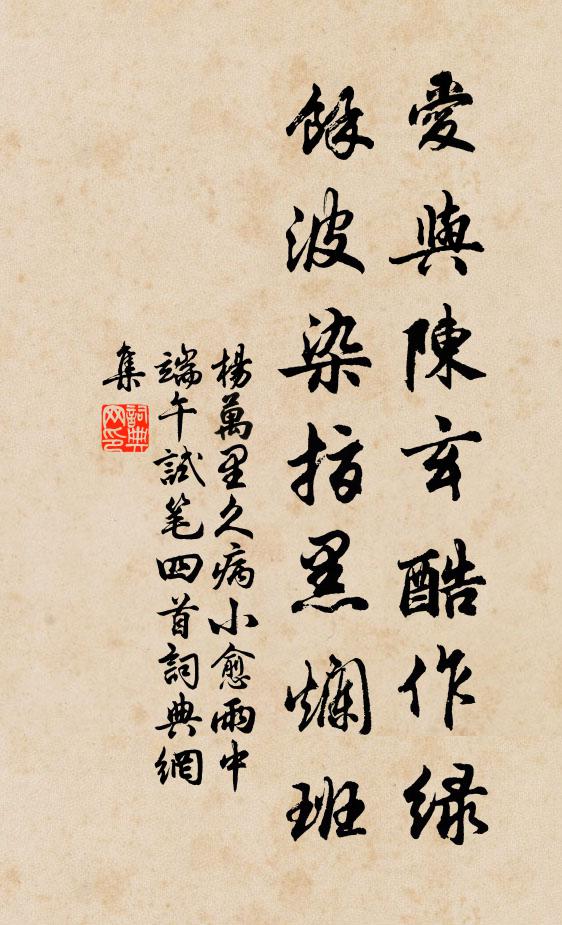 愛與陳玄酷作緑
餘波染指黑斕班
楊萬里久病小愈雨中
端午試笔四首詞典網
集
詞典
网印